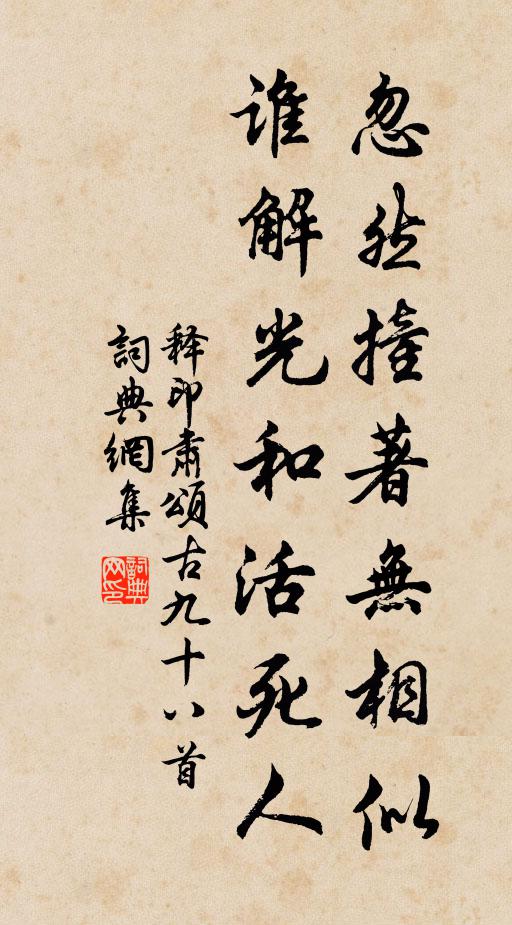 忽然撞著無相似
谁解光和活死人
释印肃颂古九十八首
詞典網集
詞典网印